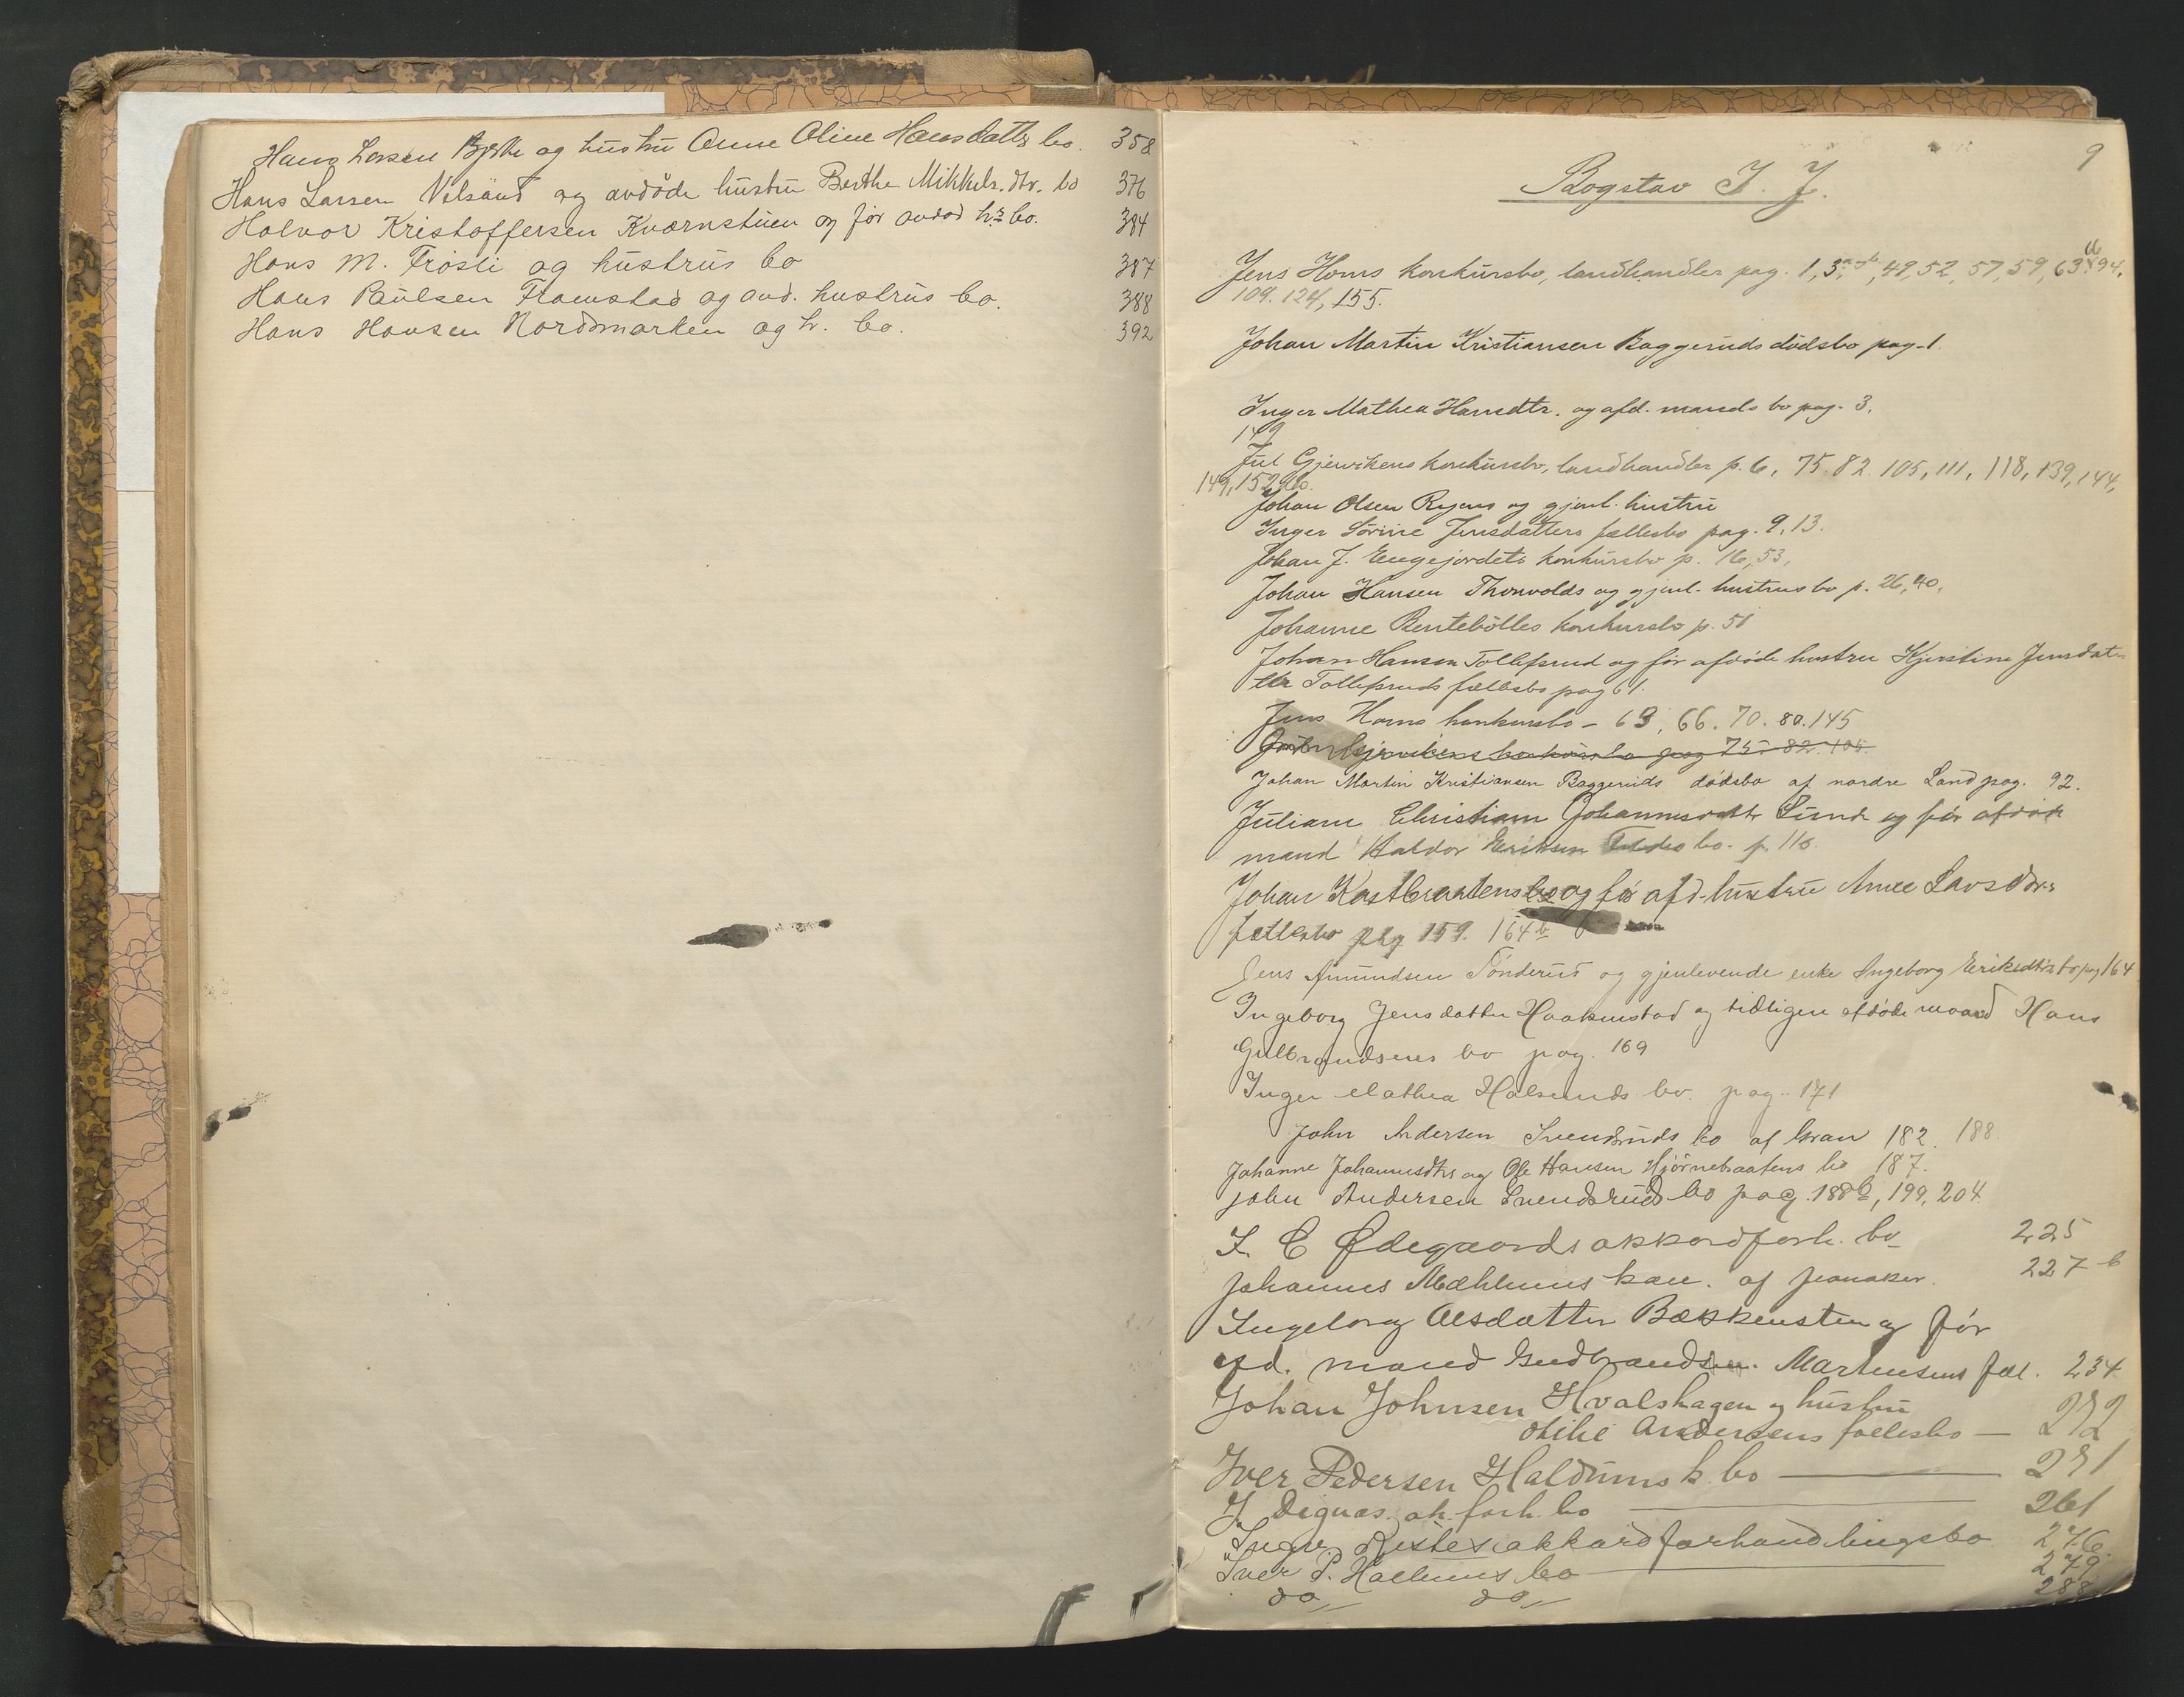 Hans Larsen Bjerke og hustru Anne Oline Hansdatters bo. 358
Hans Larsen Velsand og avdöde hustru Berthe Mikkels.dtr. bo 376
Halvor Kristoffersen Kværnstuen og för avdöd h.s bo. 384
Hans M. Frösli og hustrus bo 387
Hans Paulsen Framstad og avd. hustrus bo. 388
Hans Hansen Nordmarken og h. bo. 392
9
Bogstav I. J.
Jens Horns konkursbo, landhandler pag. 1, 3, 49, 52, 57, 59, 63, 66, 94,
109. 124, 155.
Johan Martin Kristiansen Baggeruds dödsbo pag. 1.
Inger Mathea Hansdtr. og afd. mands bo pag. 3.
149
Jul Gjevikens konkursbo, landhandler p. 6, 75. 82. 105, 111, 118, 139, 144,
149, 152
Johan Olsen Ryens og gjenl. hustru
Inger Sörine Jensdatters fællesbo pag. 9, 13.
Johan J. Engejordets konkursbo p. 16, 53,
Johan Hansen Thorvolds og gjenl. hustrus bo p. 26, 40,
Johanne Bentebölles konkursbo p. 51
Johan Hansen Tollefsrud og för afdöde hustru Kjerstine Jensdat-
ter Tollefsruds fællesbo pag 61.
Jens Horns konkursbo - 63, 66. 70. 80. 145
Gjevikens konkursbo pag 75. 82. 105.
Johan Martin Kristiansen Baggeruds dödsbo af nordre Land pag. 92.
Juliane Christiane Johannesdatter Lunde og för afdöde
mand Haldor Eriksen bo. p. 116.
Johan Kastbraatens bo og för afd. hustru Anne Larsdtrs
fællesbo pag 159. 164 b
Jens Amundsen Sönderud og gjenlevende enke Ingeborg Eriksdtrs bo pag 164
Ingeborg Jensdatter Haakenstad og tidligere afdöde mand Hans
Gulbrandsens bo pag. 169
Inger Mathea Halsruds bo. pag. 171
John Andersen Svendsruds bo af Gran 182. 188.
Johanne Johannesdtrs og Ole Hansen Hjörnebraatens bo 187.
John Andersen Svendsruds bo pag. 188 b, 199, 204
I. C Ødegaards akkordforh. bo 225
Johannes Mæhlums kau. af Jevnaker. 227 b
Ingeborg Olsdatter Bækkensten og för
afd. mand Gudbrandsen. Martinsens fæl. 234
Johan Johnsen Hvalshagen og hustru
Otilie Andersens fællesbo — 272
Iver Pedersen Haldums k. bo — 271
J. Degnæs. ak. forh. bo — 261
Inger Ristes akkordforhandlingsbo 276.
Iver P. Hallums bo — 279
do do 288